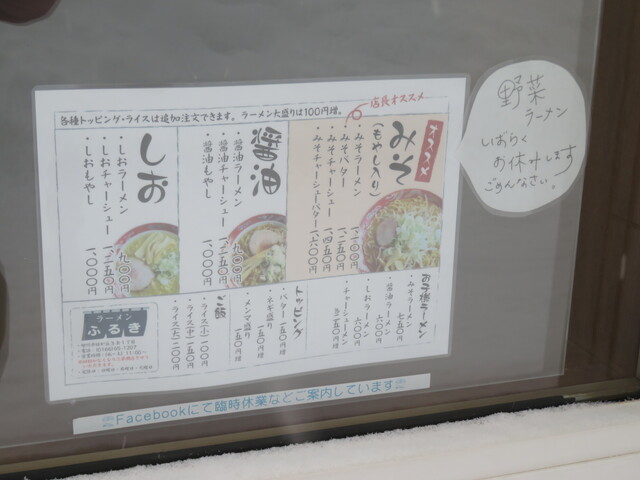 各種トッピング・ライスは追加注文できます。ラーメン大盛りは100円増。
店長オススメ
オススメ
みそ
(もやし入り)
・みそラーメン 一、一〇〇円
・みそバター 一、二五〇円
・みそチャーシュー 一、四五〇円
・みそチャーシューバター 一、六〇〇円
醤油
・醤油ラーメン 九〇〇円
・醤油チャーシュー 一、二五〇円
・醤油もやし 一、〇〇〇円
しお
・しおラーメン 九〇〇円
・しおチャーシュー 一、二五〇円
・しおもやし 一、〇〇〇円
お子様ラーメン
・みそラーメン 七五〇円
・醤油ラーメン 六〇〇円
・しおラーメン 六〇〇円
・チャーシューメン
トッピング
・バター 一五〇円
・ネギ盛り 一五〇円
・メンマ盛り 一五〇円
ご飯
・ライス(小) 一〇〇円
・ライス(中) 一五〇円
・ライス(大) 二〇〇円
ラーメン
ふるき
Facebookにて臨時休業などご案内しています
野菜
ラーメン
しばらく
お休みします
ごめんなさい。